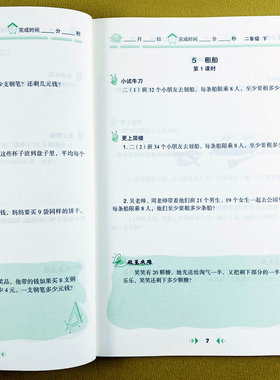 完成时间 分 秒
少支钢笔？还剩几元钱？
这些杯子放到盘子里，平均每个
钱，妈妈要买 9 袋同样的饼干，
奖品，他带的钱如果买 8 支钢
少 4 元，一支钢笔多少元钱？
月 日 完成时间 分 秒 二年级 下
5 租船
第 1 课时
小试牛刀
二（1）班 32 个小朋友去划船，每条船限乘 8 人，至少要租多少
更上层楼
1. 二（2）班 34 个小朋友去划船，每条船限乘 8 人，至少要租多
2. 吴老师、周老师带着他们班 21 个男生、19 个女生一起去公园
每条船限乘 8 人，他们至少要租多少条船？
笑笑有 20 颗糖，她先送给淘气一半，又把剩下部分的一半
乐乐，笑笑还剩下多少颗糖？
7